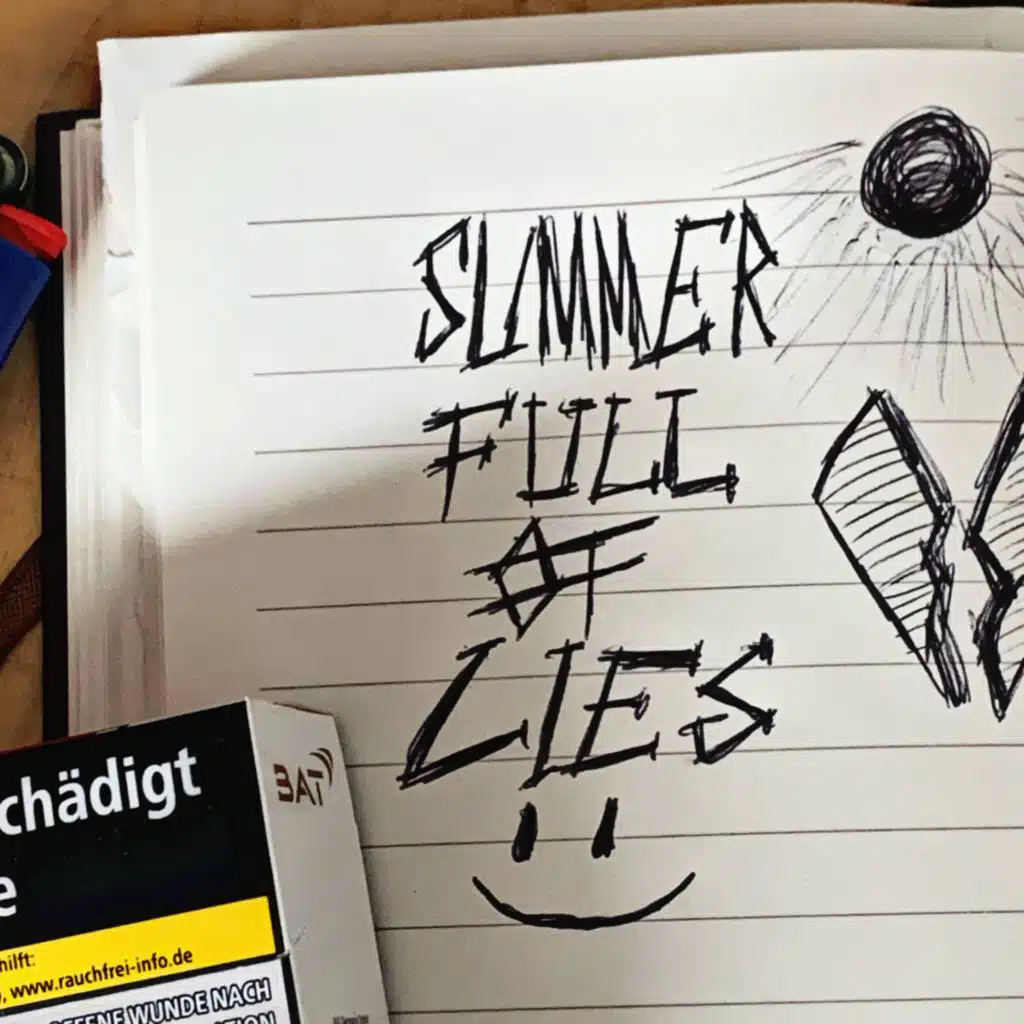 SUMMER
FULL
OF
LIES
chädigt
e
BAT
hilft:
, www.rauchfrei-info.de
OFFENE WUNDE NACH